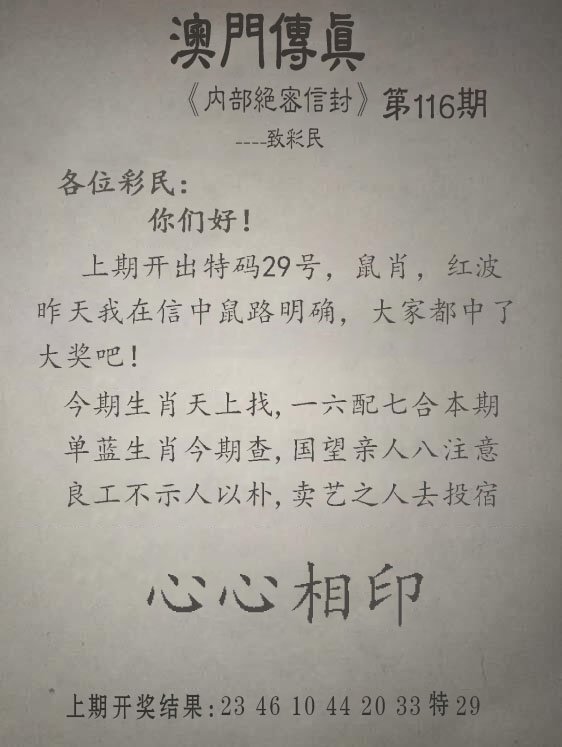 澳門傳眞
《内部絕密信封》第116期
----致彩民
各位彩民：
你们好！
上期开出特码29号，鼠肖，红波
昨天我在信中鼠路明确，大家都中了
大奖吧！
今期生肖天上找,一六配七合本期
单蓝生肖今期查,国望亲人八注意
良工不示人以朴,卖艺之人去投宿
心心相印
上期开奖结果:23 46 10 44 20 33 特 29